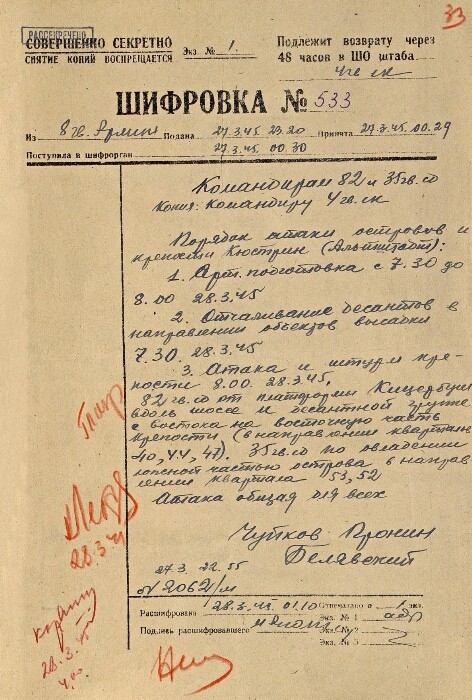 33
РАССЕКРЕЧЕНО
СОВЕРШЕННО СЕКРЕТНО
СНЯТИЕ КОПИЙ ВОСПРЕЩАЕТСЯ
Экз. № 1.
Подлежит возврату через
48 часов в ШО штаба
4 гв ск
ШИФРОВКА № 533
Из 8 гв. Армии Подана 27.3.45 23.20 Принята 27.3.45. 00.29
Поступила в шифрорган 27.3.45. 00.30
Командирам 82 и 35 гв. сд
Копия: Командиру 4 гв. ск
Порядок атаки островов и
крепости Кюстрин (Альтштадт):
1. Арт. подготовка с 7.30 до
8.00 28.3.45
2. Отчаливание десантов в
направлении объектов высадки
7.30. 28.3.45
3. Атака и штурм кре-
пости 8.00 28.3.45,
82 гв. сд от платформы Кицербуш
вдоль шоссе и десантной группе
с востока на восточную часть
крепости, (в направлении квартала
40, 44, 47). 35 гв. сд по овладении
южной частью острова в направ-
лении квартала 53, 52
Атака общая для всех
Чуйков Пронин
Белявский
27.3 22.55
№ 2062/ш
Расшифрована 28.3.45 01.10 Отпечатано в 1 экз.
Экз. № 1
Подпись расшифровавшего
Экз. № 2
Экз. № 3
28.3.45